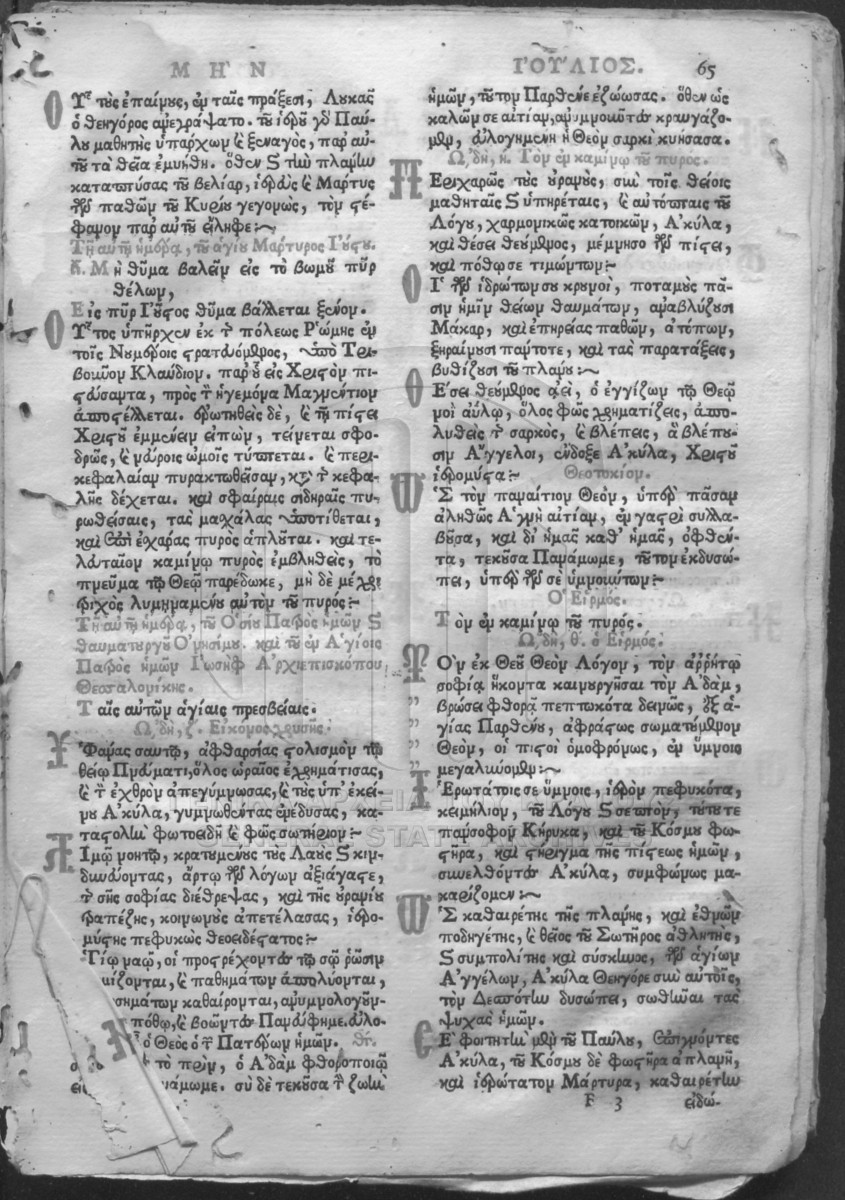 ΜΗ'Ν ΙΟΥ'ΛΙΟΣ. 65
Οὗτος ἐπαίνους, ἐν ταῖς πράξεσι, Λουκᾶς
ὁ θεηγόρος ἀνεγράψατο. τοῦ ἱεροῦ γὰρ Παύ-
λου μαθητὴς ὑπάρχων καὶ ξεναγὸς, παρ' αὐ-
τοῦ τὰ θεῖα ἐμυήθη. ὅθεν καὶ τὴν πλάνην
καταπτύσας τοῦ βελίαρ, ἱερεὺς καὶ Μάρτυς
τῶν παθῶν τοῦ Κυρίου γεγονὼς, τὸν στέ-
φανον παρ' αὐτοῦ εἴληφε:~
Τῇ αὐτῇ ἡμέρᾳ, τοῦ ἁγίου Μάρτυρος Ἰούστου.
Μὴ θῦμα βαλεῖν εἰς τὸ βωμοῦ πῦρ
θέλων,
Εἰς πῦρ Ἰοῦστος θῦμα βάλλεται ξένον.
Οὗτος ὑπῆρχεν ἐκ τῆς πόλεως Ῥώμης ἐν
τοῖς Νουμέροις στρατευόμενος, ὑπὸ Τρι-
βοῦνον Κλαύδιον. παρ' οὗ εἰς Χριστὸν πι-
στεύσαντα, πρὸς τὸν ἡγεμόνα Μαγνέντιον
ἀποστέλλεται. ἐρωτηθεὶς δὲ, καὶ τῇ πίστει
Χριστοῦ ἐμμένειν εἰπὼν, τείνεται σφο-
δρῶς, καὶ νεύροις ὠμοῖς τύπτεται. καὶ περι-
κεφαλαίαν πυρακτωθεῖσαν, κατὰ τῆς κεφα-
λῆς δέχεται. καὶ σφαίραις σιδηραῖς πυ-
ρωθείσαις, τὰς μαχάλας ὑποτίθεται,
καὶ ἐπὶ ἐσχάρας πυρὸς ἁπλοῦται. καὶ τε-
λευταῖον καμίνῳ πυρὸς ἐμβληθεὶς, τὸ
πνεῦμα τῷ Θεῷ παρέδωκε, μὴ δὲ μέχρι
τριχὸς λυμηναμένου αὐτὸν τοῦ πυρός:~
Τῇ αὐτῇ ἡμέρᾳ, τοῦ Ὁσίου Πατρὸς ἡμῶν καὶ
θαυματουργοῦ Ὀνησίμου. καὶ τοῦ ἐν Ἁγίοις
Πατρὸς ἡμῶν Ἰωσὴφ Ἀρχιεπισκόπου
Θεσσαλονίκης.
Ταῖς αὐτῶν ἁγίαις πρεσβείαις.
Ὠδὴ, ζ. Εἰκόνος χρυσῆς.
Ὑφάνας σαυτῷ, ἀφθαρσίας στολισμὸν τῷ
θείῳ Πνεύματι, ὅλος ὡραῖος ἐχρημάτισας,
καὶ τὸν ἐχθρὸν ἀπεγύμνωσας, καὶ τοὺς ὑπ' ἐκεί-
νου Ἀκύλα, γυμνωθέντας ἐνέδυσας, κα-
ταστολὴν φωτοειδῆ καὶ φῶς σωτήριον:~
Λιμῷ νοητῷ, κρατουμένους τοὺς Λαοὺς καὶ κιν-
δυνεύοντας, ἄρτῳ τῶν λόγων ἀξιάγαστε,
τῆς σῆς σοφίας διέθρεψας, καὶ τῆς οὐρανίου
τραπέζης, κοινωνοὺς ἀπετέλεσας, ἱερο-
μύστης πεφυκὼς θεοειδέστατος:~
Τίῳ ναῷ, οἱ προστρέχοντες τῷ σῷ ῥῶσιν
μίζονται, καὶ παθημάτων ἀπολύονται,
σημάτων καθαίρονται, ἀνυμνολογοῦν-
πόθῳ, καὶ βοῶντες Πανεύφημε. εὐλο-
ὁ Θεὸς ὁ τῶν Πατέρων ἡμῶν.
τὸ πρὶν, ὁ Ἀδὰμ φθοροποιῷ
νάμωμε. σὺ δὲ τεκοῦσα τὴν ζωὴν
ἡμῶν, τοῦτον Παρθένε ἐζώωσας. ὅθεν ὡς
καλῶν σε αἰτίαν, ἀνυμνοῦντες κραυγάζο-
μεν, εὐλογημένη ἡ Θεὸν σαρκὶ κυήσασα.
Ὠδὴ, η. Τὸν ἐν καμίνῳ τοῦ πυρός.
Περιχαρῶς τοὺς οὐρανοὺς, σὺν τοῖς θείοις
μαθηταῖς καὶ ὑπηρέταις, καὶ αὐτόπταις τοῦ
Λόγου, χαρμονικῶς κατοικῶν, Ἀκύλα,
καὶ θέσει θεούμενος, μέμνησο τῶν πίστει,
καὶ πόθῳ σε τιμώντων:~
Οἱ τῶν ἱδρώτων σου κρουνοὶ, ποταμοὺς πᾶ-
σιν ἡμῖν θείων θαυμάτων, ἀναβλύζουσι
Μάκαρ, καὶ ἐπηρείας παθῶν, ἀτόπων,
ξηραίνουσι πάντοτε, καὶ τὰς παρατάξεις,
βυθίζουσι τοῦ πλάνου:~
Θέσει θεούμενος ἀεὶ, ὁ ἐγγίζων τῷ Θεῷ
νοῒ ἀΰλῳ, ὅλος φῶς χρηματίζεις, ἀπο-
λυθεὶς τῆς σαρκὸς, καὶ βλέπεις, ἃ βλέπου-
σιν Ἄγγελοι, ἔνδοξε Ἀκύλα, Χριστοῦ
ἱερομύστα:~ Θεοτοκίον.
Ὡς τὸν παναίτιον Θεὸν, ὑπὲρ πᾶσαν
ἀληθῶς Ἁγνὴ αἰτίαν, ἐν γαστρὶ συλλα-
βοῦσα, καὶ δι' ἡμᾶς καθ' ἡμᾶς, ὀφθέν-
τα, τεκοῦσα Πανάμωμε, τοῦτον ἐκδυσώ-
πει, ὑπὲρ τῶν σὲ ὑμνούντων:~
Ὁ Εἱρμός.
Τὸν ἐν καμίνῳ τοῦ πυρός.
Ὠδὴ, θ. ὁ Εἱρμός.
Τὸν ἐκ Θεοῦ Θεὸν Λόγον, τὸν ἀῤῥήτῳ
σοφίᾳ ἥκοντα καινουργῆσαι τὸν Ἀδὰμ,
βρώσει φθορᾷ πεπτωκότα δεινῶς, ἐξ ἁ-
γίας Παρθένου, ἀφράστως σωματούμενον
Θεὸν, οἱ πιστοὶ ὁμοφρόνως, ἐν ὕμνοις
μεγαλύνομεν:~
Ἱερωτάτοις σε ὕμνοις, ἱερὸν πεφυκότα,
κειμήλιον, τοῦ Λόγου καὶ σεπτὸν, τοῦτου τε
πανσοφον Κήρυκα, καὶ τοῦ Κόσμου φω-
στῆρα, καὶ στήριγμα τῆς πίστεως ἡμῶν,
συνελθόντες Ἀκύλα, συμφώνως μα-
καρίζομεν:~
Ὡς καθαιρέτης τῆς πλάνης, καὶ ἐθνῶν
ποδηγέτης, καὶ θεῖος τοῦ Σωτῆρος ἀθλητὴς,
καὶ συμπολίτης καὶ σύσκηνος, τῶν ἁγίων
Ἀγγέλων, Ἀκύλα Θεηγόρε σὺν αὐτοῖς,
τὸν Δεσπότην δυσώπει, σωθῆναι τὰς
ψυχὰς ἡμῶν.
Σὲ φοιτητὴν μὲν τοῦ Παύλου, ἐπιγνόντες
Ἀκύλα, τοῦ Κόσμου δὲ φωστῆρα ἀπλανῆ,
καὶ ἱερώτατον Μάρτυρα, καθαιρέτην
F 3 εἰδώ-